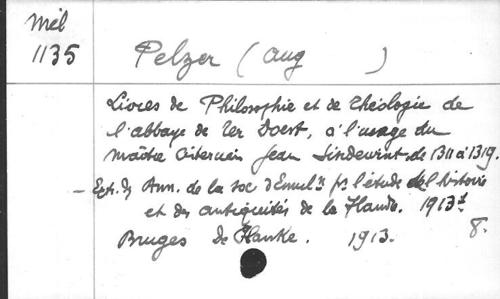 Mél
1135
Pelzer (Aug )
Livres de Philosophie et de Théologie de
l'abbaye de Ter Doest, à l'usage du
maître cistercien Jean Sindewint, de 1311 à 1319.
- Ext. d. Ann. de la soc d'Emul. pr l'étude de l'histoire
et des antiquités de la Flandre. 1913.
Bruges De Plancke. 1913. 8.